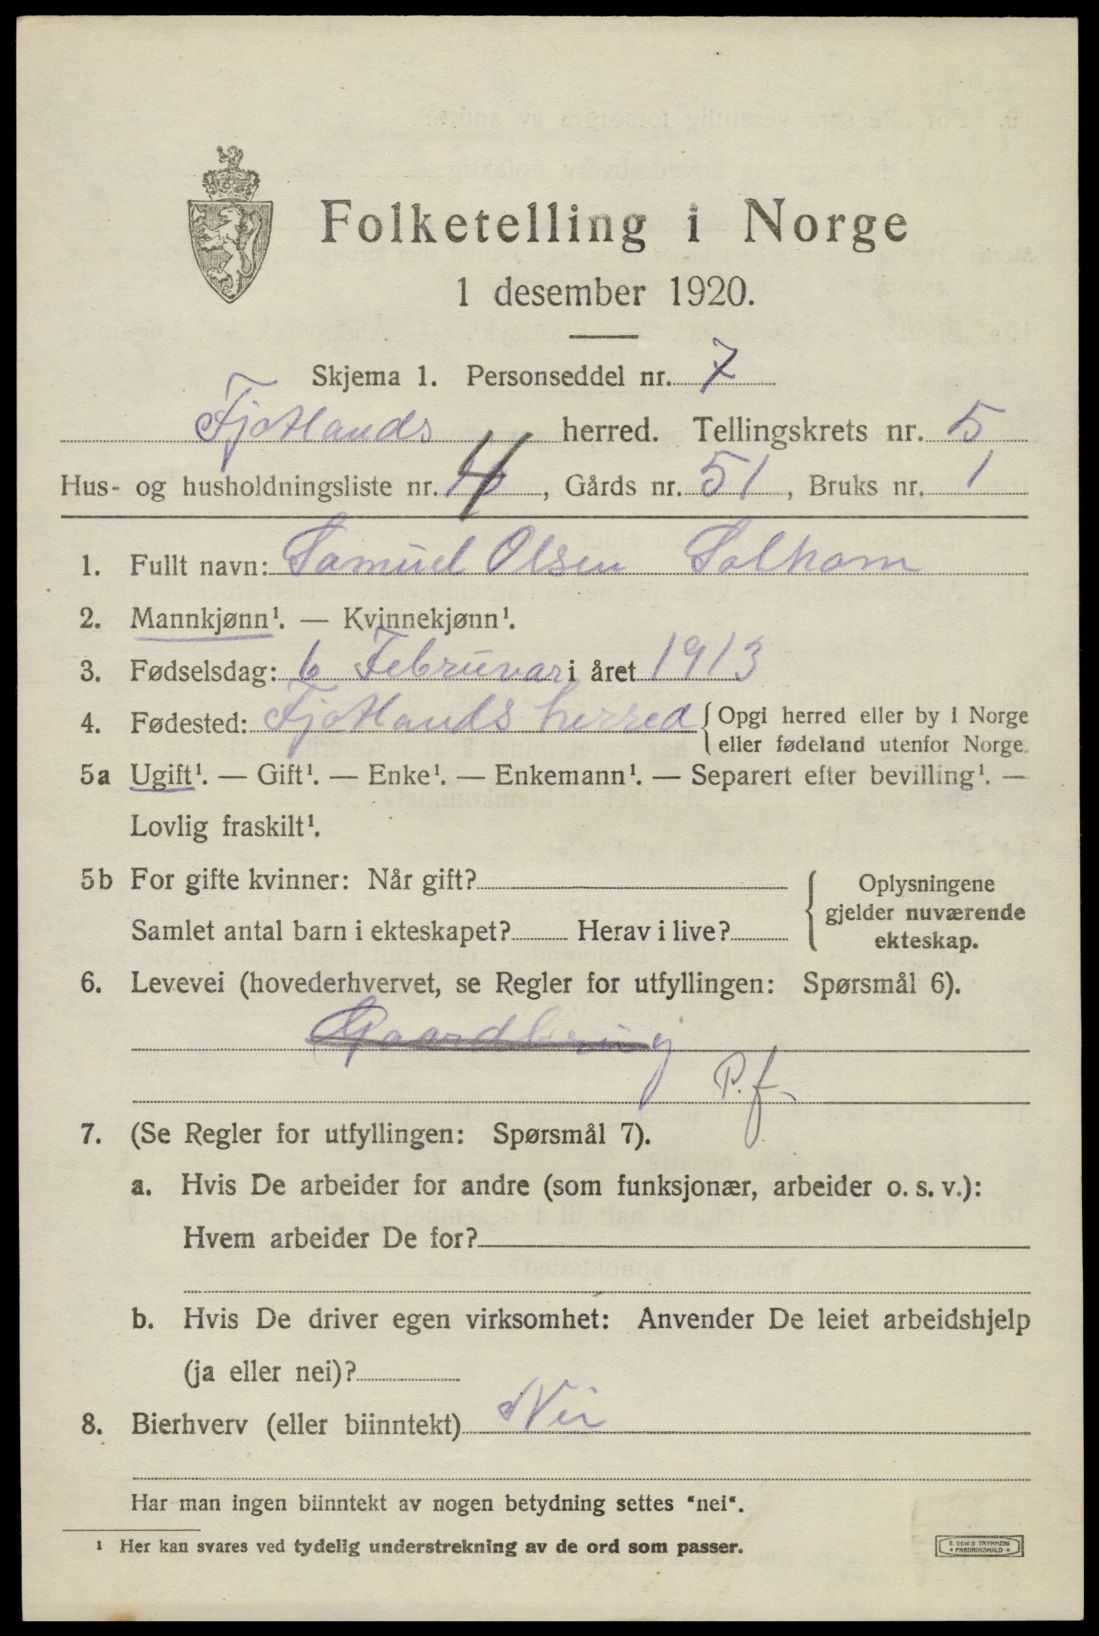 Folketelling i Norge
1 desember 1920.
Skjema 1. Personseddel nr. 7
Fjotlands herred. Tellingskrets nr. 5
Hus- og husholdningsliste nr. 4, Gårds nr. 51, Bruks nr. 1
1. Fullt navn: Samuel Olsen Solhom
2. Mannkjønn¹. — Kvinnekjønn¹.
3. Fødselsdag: 6 Februvar i året 1913
4. Fødested: Fjotlands herred {Opgi herred eller by i Norge
eller fødeland utenfor Norge.
5a Ugift¹. — Gift¹. — Enke¹. — Enkemann¹. — Separert efter bevilling¹. —
Lovlig fraskilt¹.
5b For gifte kvinner: Når gift?
Samlet antal barn i ekteskapet? Herav i live?
{Oplysningene
gjelder nuværende
ekteskap.
6. Levevei (hovederhvervet, se Regler for utfyllingen: Spørsmål 6).
P. f.
7. (Se Regler for utfyllingen: Spørsmål 7).
a. Hvis De arbeider for andre (som funksjonær, arbeider o. s. v.):
Hvem arbeider De for?
b. Hvis De driver egen virksomhet: Anvender De leiet arbeidshjelp
(ja eller nei)?
8. Bierhverv (eller biinntekt) Nei
Har man ingen biinntekt av nogen betydning settes "nei".
¹ Her kan svares ved tydelig understrekning av de ord som passer.
E. SEM'S TRYKKERI
• FREDRIKSHALD •